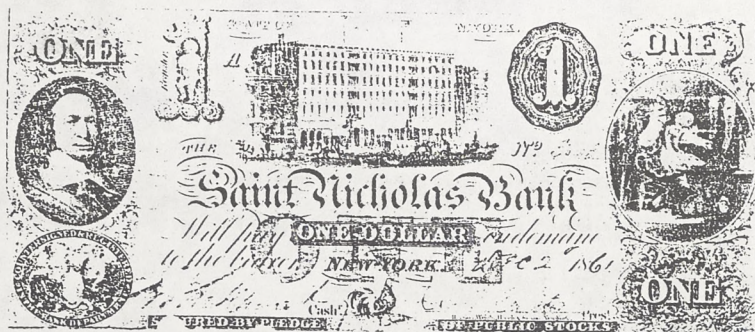 ONE
STATE OF
1
A
ONE
1
THE
Nº
Saint Nicholas Bank
Will pay ONE DOLLAR on demand
to the bearer NEW-YORK Dec 2 1861
Cash.r
Pres.t
ONE
SECURED BY PLEDGE
OF PUBLIC STOCKS